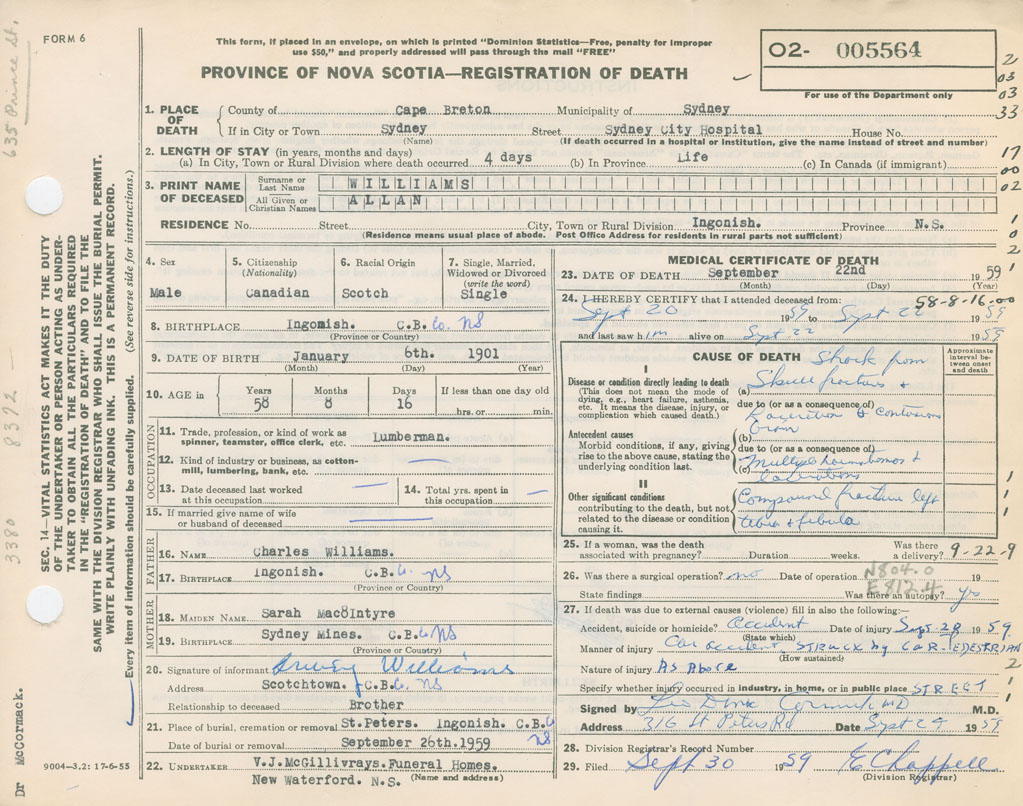 FORM 6
This form, if placed in an envelope, on which is printed "Dominion Statistics—Free, penalty for improper
use $50," and properly addressed will pass through the mail "FREE"
PROVINCE OF NOVA SCOTIA—REGISTRATION OF DEATH
02- 005564
For use of the Department only
2
03
03
33
17
00
02
1
0
2
1
1. PLACE OF DEATH County of Cape Breton Municipality of Sydney
If in City or Town Sydney Street Sydney City Hospital House No.
(Name) (If death occurred in a hospital or institution, give the name instead of street and number)
2. LENGTH OF STAY (in years, months and days)
(a) In City, Town or Rural Division where death occurred 4 days (b) In Province Life (c) In Canada (if immigrant)
3. PRINT NAME OF DECEASED
Surname or Last Name WILLIAMS
All Given or Christian Names ALLAN
RESIDENCE No. Street City, Town or Rural Division Ingonish. Province N.S.
(Residence means usual place of abode. Post Office Address for residents in rural parts not sufficient)
4. Sex Male
5. Citizenship (Nationality) Canadian
6. Racial Origin Scotch
7. Single, Married, Widowed or Divorced (write the word) Single
8. BIRTHPLACE Ingonish. C.B. Co. NS
(Province or Country)
9. DATE OF BIRTH January 6th. 1901
(Month) (Day) (Year)
10. AGE in Years 58 Months 8 Days 16 If less than one day old
hrs. or min.
OCCUPATION
11. Trade, profession, or kind of work as spinner, teamster, office clerk, etc. Lumberman.
12. Kind of industry or business, as cotton-mill, lumbering, bank, etc.
13. Date deceased last worked at this occupation
14. Total yrs. spent in this occupation
15. If married give name of wife or husband of deceased
FATHER
16. NAME Charles Williams.
17. BIRTHPLACE Ingonish. C.B. Co. NS
(Province or Country)
MOTHER
18. MAIDEN NAME Sarah Mac8Intyre
19. BIRTHPLACE Sydney Mines. C.B. Co NS
(Province or Country)
20. Signature of informant Williams
Address Scotchtown. C.B. Co. NS
Relationship to deceased Brother
21. Place of burial, cremation or removal St.Peters. Ingonish. C.B. Co NS
Date of burial or removal September 26th.1959
22. UNDERTAKER V.J.McGillivrays.Funeral Homes.
New Waterford. N.S. (Name and address)
MEDICAL CERTIFICATE OF DEATH
23. DATE OF DEATH September 22nd 1959
(Month) (Day) (Year)
24. I HEREBY CERTIFY that I attended deceased from: 58-8-16-00
Sept 20 1959 to Sept 22 1959
and last saw him alive on Sept 22 1959
CAUSE OF DEATH
Approximate interval between onset and death
I
Disease or condition directly leading to death
(This does not mean the mode of dying, e.g., heart failure, asthenia, etc. It means the disease, injury, or complication which caused death.)
Shock from
(a) Skull fracture &
due to (or as a consequence of)
Laceration & Contusions
brain
Antecedent causes
Morbid conditions, if any, giving rise to the above cause, stating the underlying condition last.
(b)
due to (or as a consequence of)
(c) Multiple &
lacerations
II
Other significant conditions
contributing to the death, but not related to the disease or condition causing it.
Compound fracture left
tibia & fibula
1
1
1
25. If a woman, was the death associated with pregnancy? Duration weeks. Was there a delivery? 9-22-9
26. Was there a surgical operation? no Date of operation 19
N804.0
E812.4
State findings Was there an autopsy? yes
27. If death was due to external causes (violence) fill in also the following:—
Accident, suicide or homicide? Accident Date of injury Sept 20 1959.
(State which)
Manner of injury Car accident, STRUCK by CAR-PEDESTRIAN
(How sustained)
Nature of injury As Above
2
Specify whether injury occurred in industry, in home, or in public place STREET
1
Signed by M.D.
Address 316 St Peters Rd Date Sept 24 1959
28. Division Registrar's Record Number
29. Filed Sept 30 1959 E Chappell
(Division Registrar)
SEC. 14—VITAL STATISTICS ACT MAKES IT THE DUTY
OF THE UNDERTAKER OR PERSON ACTING AS UNDER-
TAKER TO OBTAIN ALL THE PARTICULARS REQUIRED
IN THE "REGISTRATION OF DEATH" AND TO FILE THE
SAME WITH THE DIVISION REGISTRAR WHO SHALL ISSUE THE BURIAL PERMIT.
WRITE PLAINLY WITH UNFADING INK. THIS IS A PERMANENT RECORD.
Every item of information should be carefully supplied. (See reverse side for instructions.)
635 Prince St.
3380 8372 —
Dr McCormack.
9004-3.2: 17-6-55